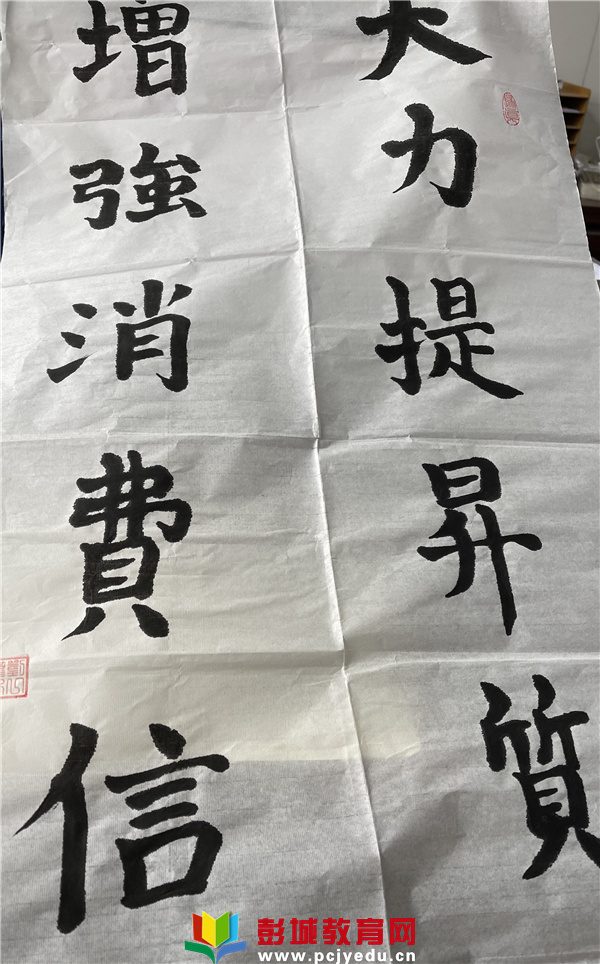 大力提昇質
增強消費信
彭城教育网
www.pcjyedu.cn